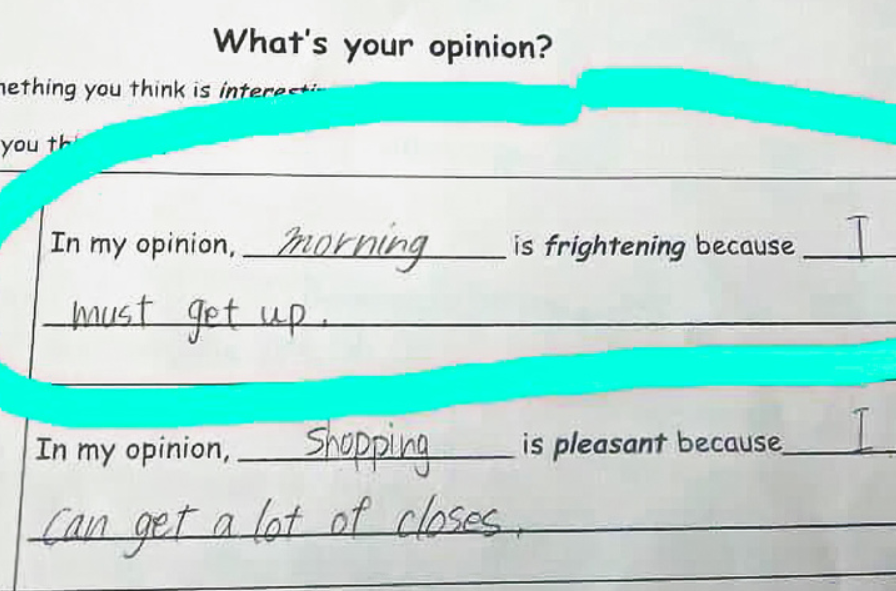 What's your opinion?
nething you think is interesti
you th
In my opinion, morning is frightening because I
must get up.
In my opinion, Shopping is pleasant because I
can get a lot of closes.